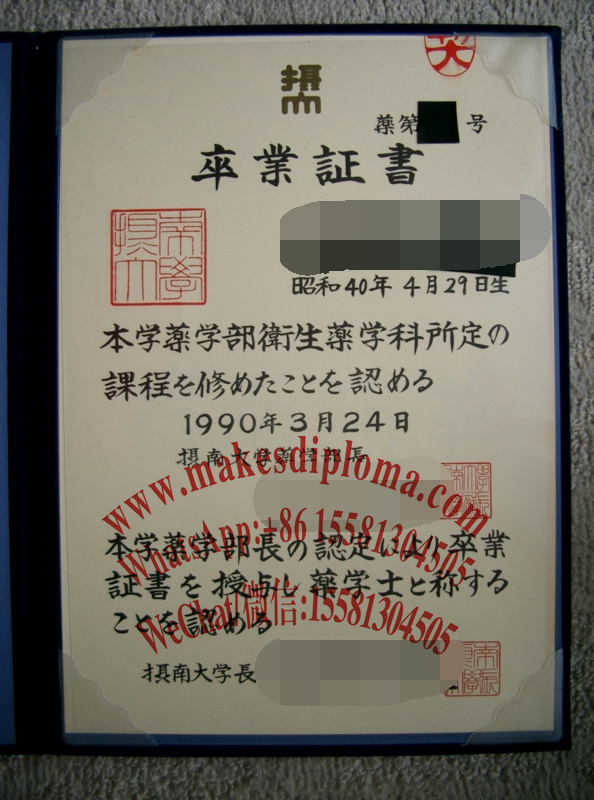 摂大
薬第 号
卒業証書
摂南大学
昭和40年 4月29日生
本学薬学部衛生薬学科所定の
課程を修めたことを認める
1990年3月24日
摂南大学薬学部長
www.makesdiploma.com
WhatsApp:+86 15581304505
本学薬学部長の認定により卒業
証書を授与し薬学士と称する
ことを認める
WeChat/微信:15581304505
摂南大学長